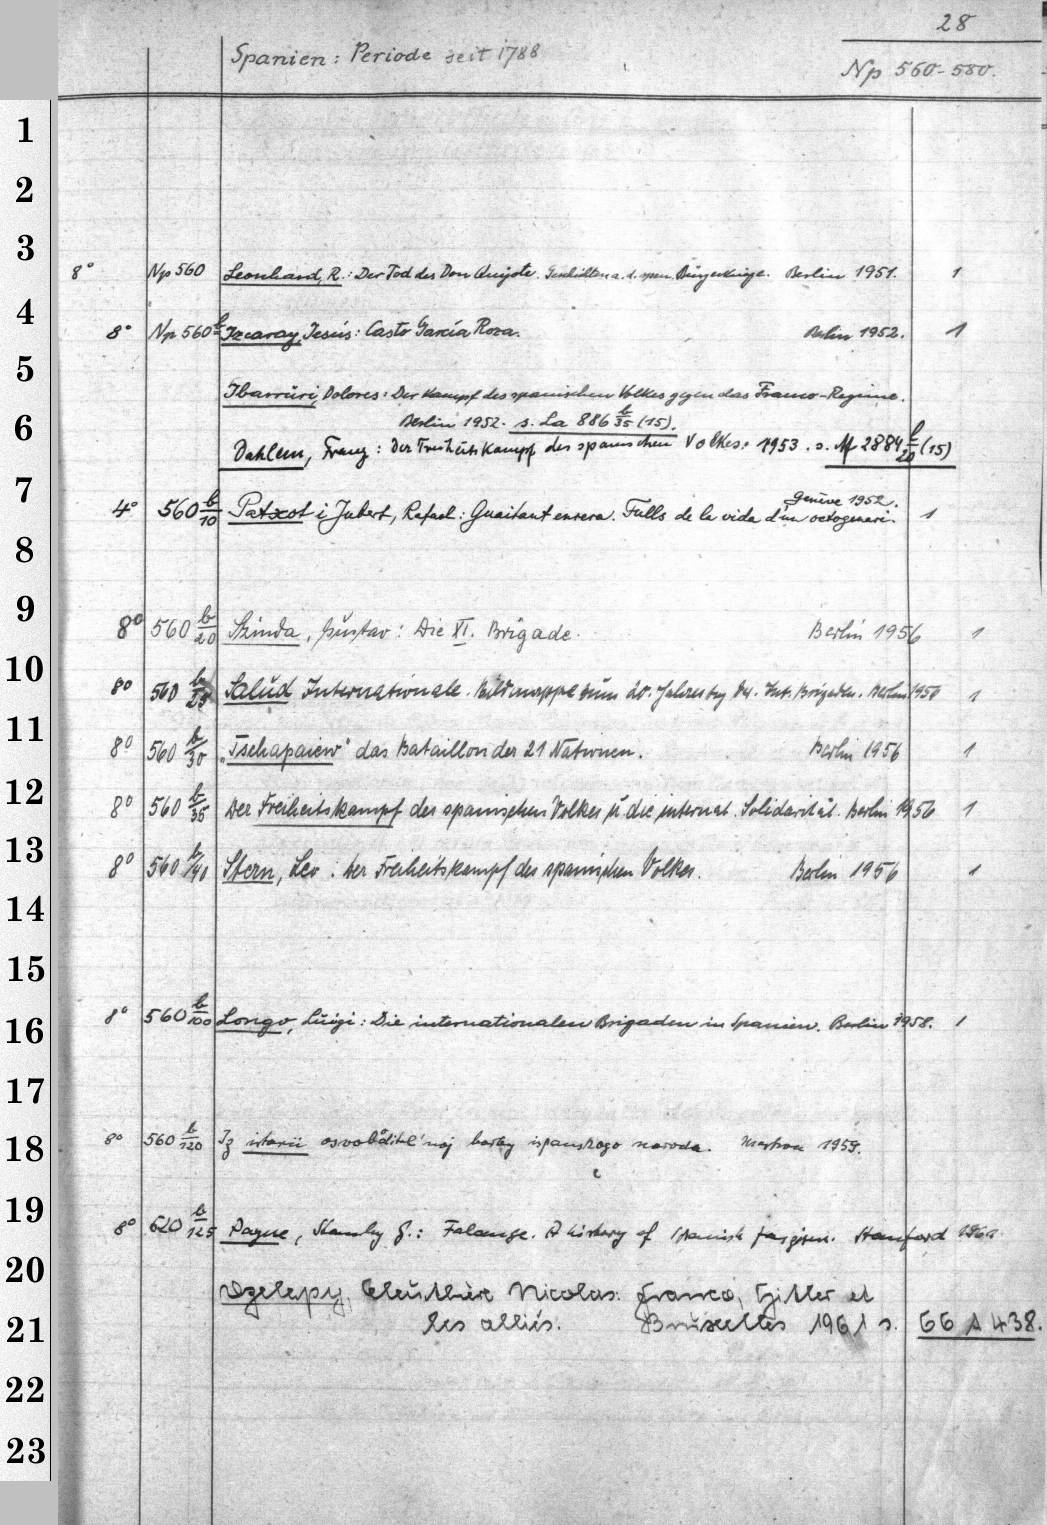 28
Spanien: Periode seit 1788
Np 560-580.
1
2
3
8° Np 560 Leonhard, R.: Der Tod des Don Quijote. Geschichten a. d. span. Bürgerkriege. Berlin 1951. 1
4
8° Np 560 b Izcaray, Jesús: Casto García Roza. Berlin 1952. 1
5
Ibarruri, Dolores: Der Kampf des spanischen Volkes gegen das Franco-Regime.
6
Berlin 1952. s. La 886 b/35 (15).
Dahlem, Franz: Der Freiheitskampf des spanischen Volkes. 1953. s. Af 2884 b/20 (15)
7
Genève 1952.
4° 560 b/10 Patxot i Jubert, Rafael: Guaitant enrera. Fulls de la vida d'un octogenari. 1
8
9
8° 560 b/20 Szinda, Gustav: Die XI. Brigade. Berlin 1956 1
10
8° 560 b/25 Salud Internationale. Bildmappe zum 20. Jahrestag d. Int. Brigaden. Berlin 1956 1
11
8° 560 b/30 "Tschapaiew" das Bataillon der 21 Nationen. Berlin 1956 1
12
8° 560 b/35 Der Freiheitskampf des spanischen Volkes u die internat. Solidarität. Berlin 1956 1
13
8° 560 b/40 Stern, Leo: Der Freiheitskampf des spanischen Volkes. Berlin 1956 1
14
15
16
8° 560 b/100 Longo, Luigi: Die internationalen Brigaden in Spanien. Berlin 1958. 1
17
18
8° 560 b/120 Iz istorii osvoboditel'noj bor'by ispanskogo naroda. Moskva 1959.
19
8° 620 b/125 Payne, Stanley G.: Falange. A history of Spanish fascism. Stanford 1961
20
Dzelepy, Eleuthère Nicolas: Franco, Hitler et
21
les alliés. Bruxelles 1961 s. 66 A 438.
22
23